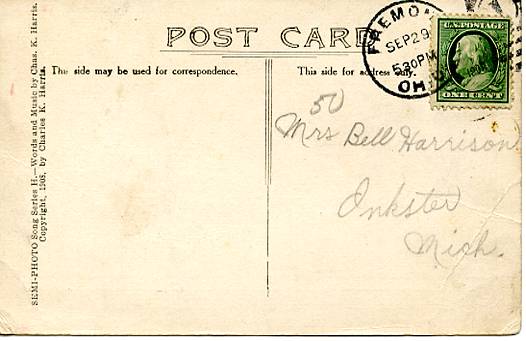 POST CARD
This side may be used for correspondence.
This side for address only.
SEMI-PHOTO Song Series H.—Words and Music by Chas. K. Harris.
Copyright, 1908, by Charles K. Harris.
FREMON
SEP 29
530PM
OHIO
U.S. POSTAGE
ONE CENT
50
Mrs Bell Harrison
Inkster
Mich.